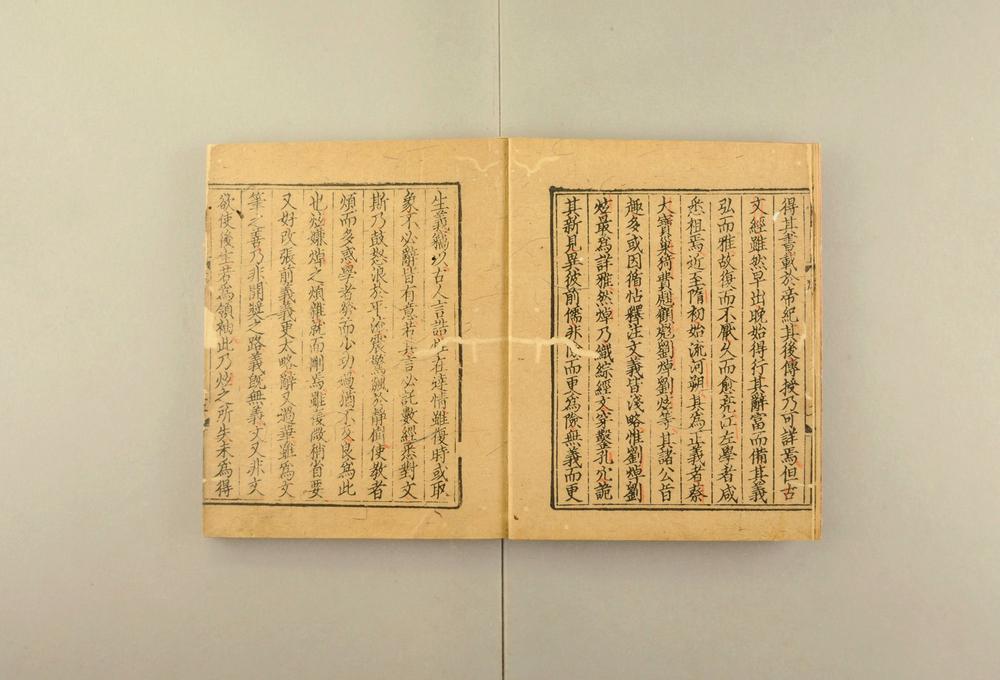 得其書載於帝紀其後傳授乃可詳焉但古
文經雖然早出晚始得行其辭富而備其義
弘而雅故復而不厭久而愈亮江左學者咸
悉祖焉近至隋初始流河朔其為正義者蔡
大寶巢猗費甝顧彪劉焯劉炫等其諸公旨
趣多或因循怗釋注文義皆淺略惟劉焯劉
炫最為詳雅然焯乃織綜經文穿鑿孔穴詭
其新見異彼前儒非險而更為險無義而更
生義竊以古人言誥惟在達情雖復時或取
象不必辭皆有意若其言必託數經悉對文
斯乃鼓怒浪於平流震驚飇於靜樹使敎者
煩而多惑學者勞而少功過猶不及良為此
也炫嫌焯之煩雜就而刪焉雖復微稍省要
又好改張前義義更太略辭又過華雖為文
筆之善乃非開奬之路義既無義文又非文
欲使後生若為領袖此乃炫之所失未為得